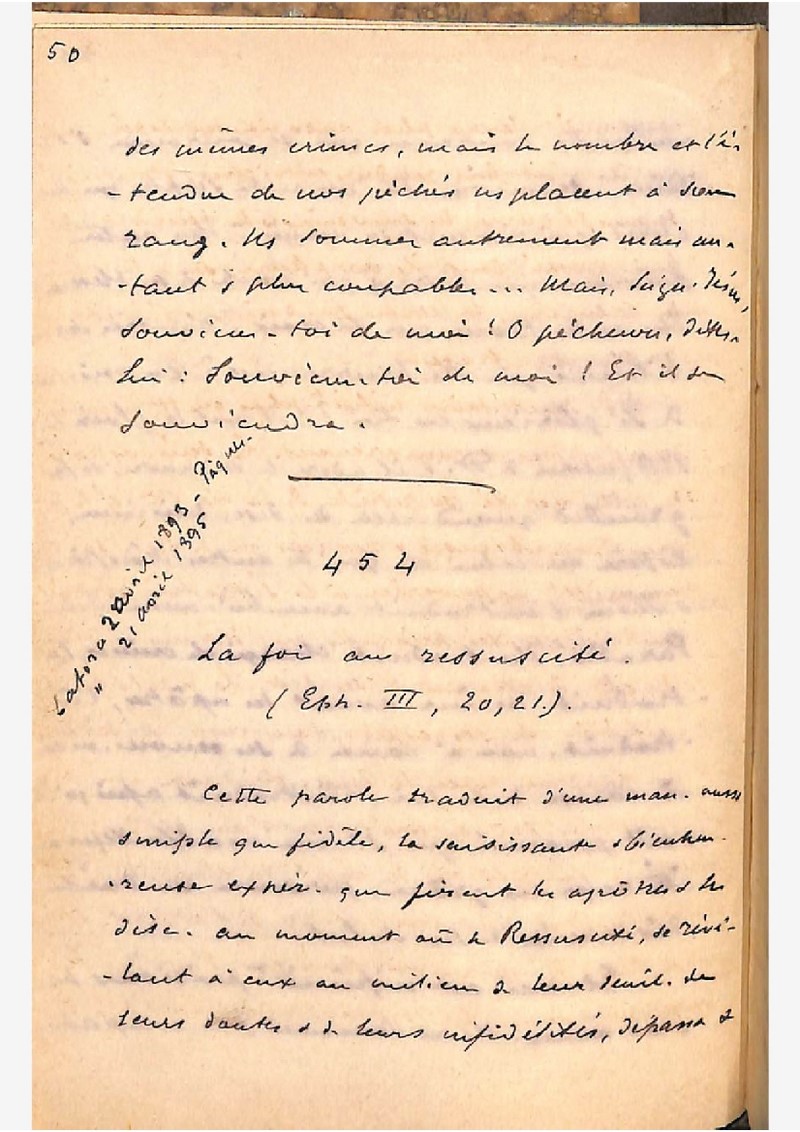 50
des mêmes crimes, mais le nombre et l'é-
-tendue de nos péchés ns placent à son
rang. Ns sommes autrement mais au-
-tant & plus coupables... Mais, Seign. Jésus,
souviens-toi de moi ! O pécheurs, dites-
lui : Souviens-toi de moi ! Et il se
souviendra.
Latora 2 avril 1893 - Pâques.
" 21 avril 1895
454
La foi au ressuscité.
(Eph. III, 20, 21.).
Cette parole traduit d'une man. aussi
simple que fidèle, la saisissante & bienheu-
-reuse expér. que firent les apôtres & les
disc. au moment où le Ressuscité, se révé-
-lant à eux au milieu de leur deuil, de
leurs doutes & de leurs infidélités, dépassa &